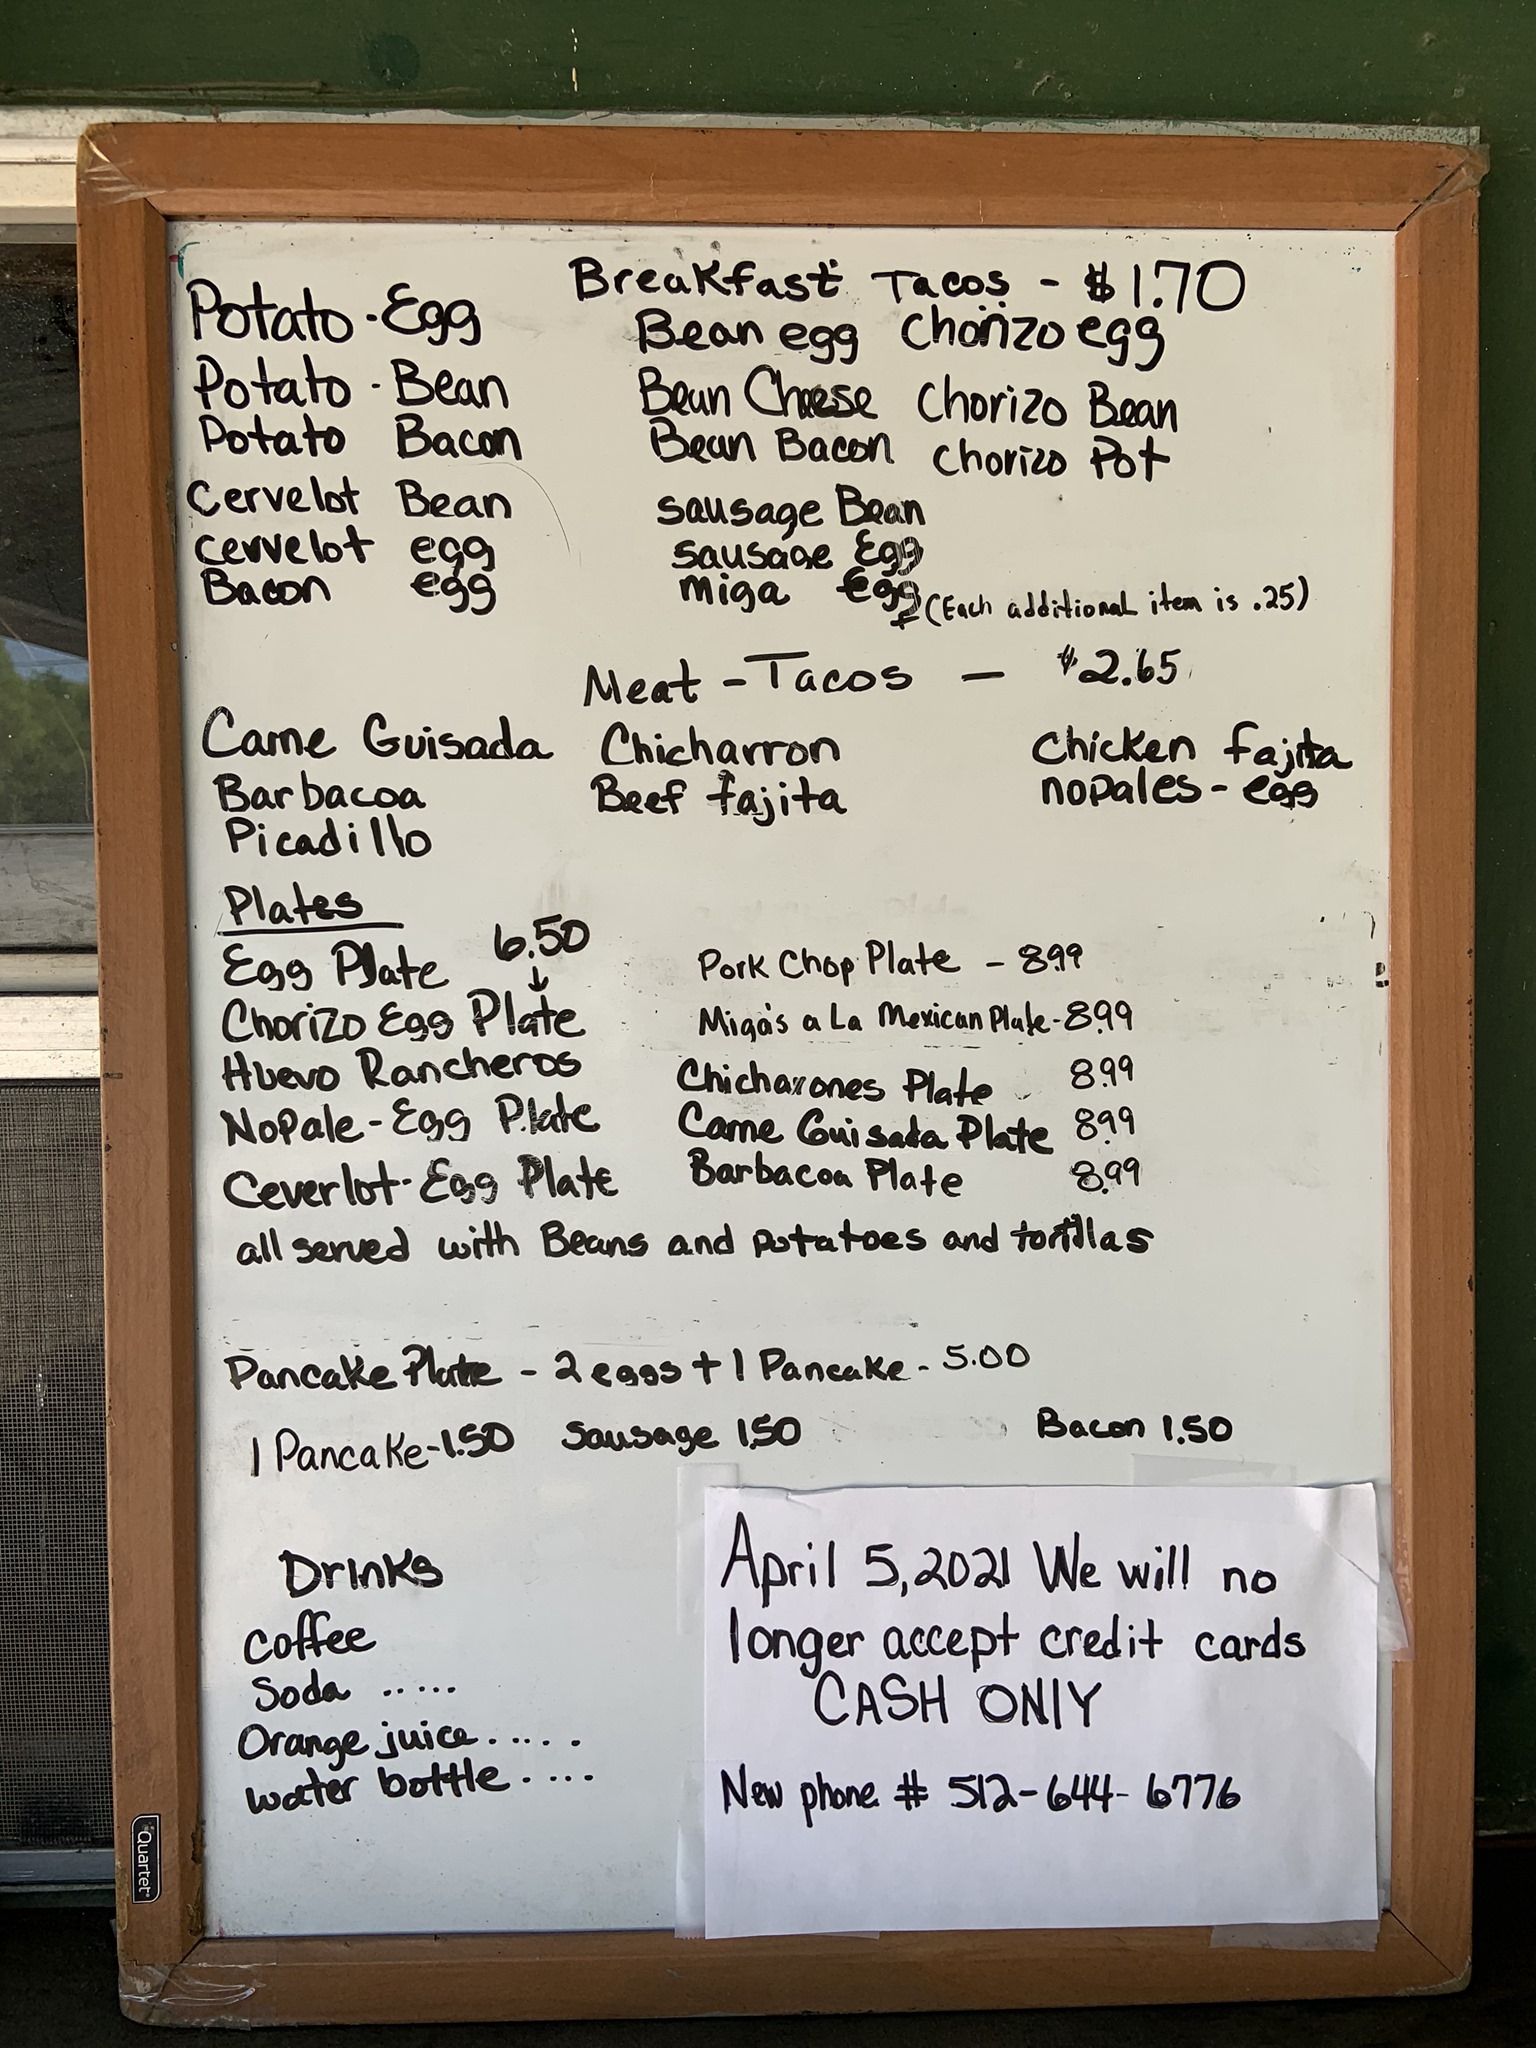 Breakfast Tacos - $1.70
Potato - Egg Bean egg Chorizo egg
Potato - Bean Bean Cheese Chorizo Bean
Potato Bacon Bean Bacon Chorizo Pot
Cervelot Bean sausage Bean
cervelot egg sausage Egg
Bacon egg miga Egg (Each additional item is .25)
Meat - Tacos - $2.65
Carne Guisada Chicharron Chicken fajita
Barbacoa Beef fajita nopales - egg
Picadillo
Plates
Egg Plate 6.50 ↓ Pork Chop Plate - 8.99
Chorizo Egg Plate Miga's a La Mexican Plate - 8.99
Huevo Rancheros Chicharones Plate 8.99
Nopale - Egg Plate Carne Guisada Plate 8.99
Ceverlot - Egg Plate Barbacoa Plate 8.99
all served with Beans and potatoes and tortillas
Pancake Plate - 2 eggs + 1 Pancake - 5.00
1 Pancake - 1.50 Sausage 1.50 Bacon 1.50
Drinks
coffee
Soda .....
Orange juice .....
water bottle ....
April 5, 2021 We will no
longer accept credit cards
CASH ONlY
New phone # 512-644-6776
Quartet